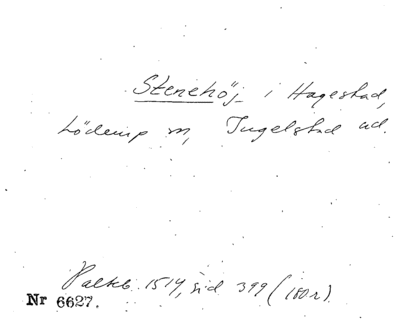 Stenehöj i Hagestad,
Löderup sn, Ingelstad hd.
Palkb. 1514, sid 399 (180 r).
Nr 6627.